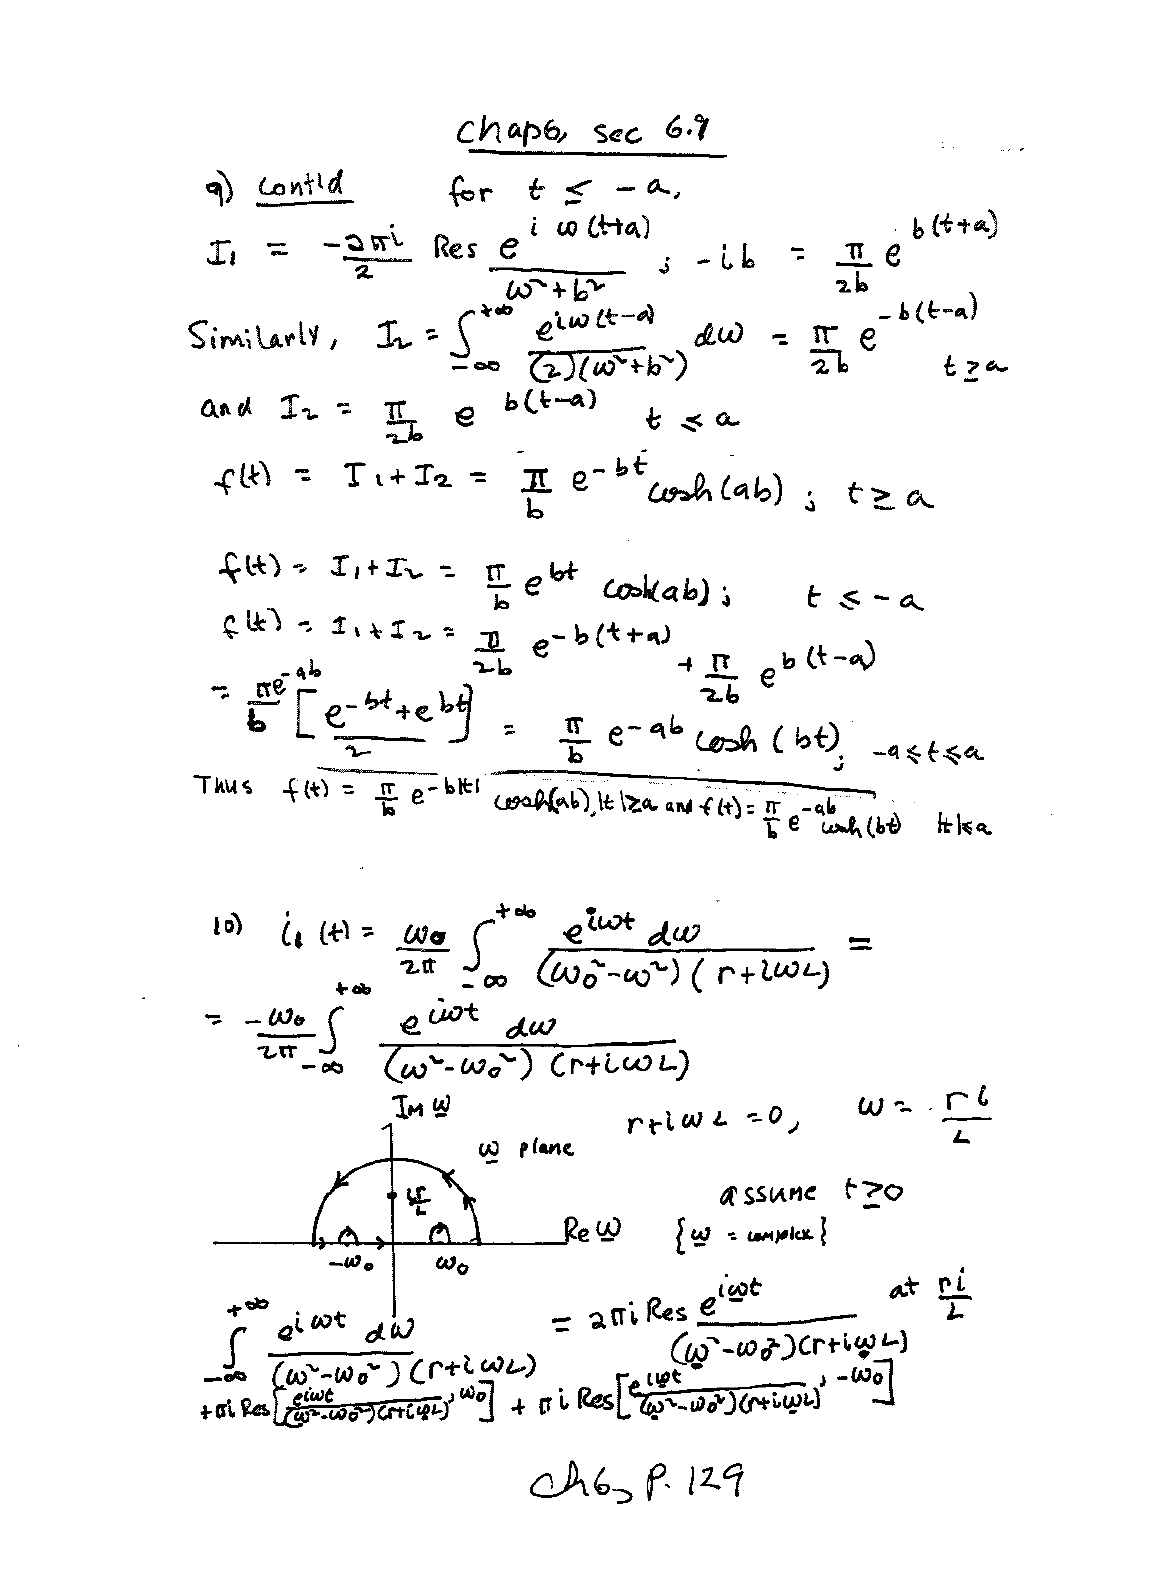 Chap6, sec 6.9
9) cont'd for t ≤ -a,
I₁ = -2πi/2 Res e^{iω(t+a)}/(ω²+b²) ; -ib = π/2b e^{b(t+a)}
Similarly, I₂ = ∫_{-∞}^{+∞} e^{iω(t-a)}/((2)(ω²+b²)) dω = π/2b e^{-b(t-a)} t ≥ a
and I₂ = π/2b e^{b(t-a)} t ≤ a
f(t) = I₁+I₂ = π/b e^{-bt} cosh(ab) ; t ≥ a
f(t) = I₁+I₂ = π/b e^{bt} cosh(ab) ; t ≤ -a
f(t) = I₁+I₂ = π/2b e^{-b(t+a)} + π/2b e^{b(t-a)}
= πe^{-ab}/b [(e^{-bt}+e^{bt})/2] = π/b e^{-ab} cosh(bt) ; -a ≤ t ≤ a
Thus f(t) = π/b e^{-b|t|} cosh(ab), |t| ≥ a and f(t) = π/b e^{-ab} cosh(bt) |t| ≤ a
10) i₁(t) = ω₀/2π ∫_{-∞}^{+∞} e^{iωt} dω/((ω₀²-ω²)(r+iωL)) =
= -ω₀/2π ∫_{-∞}^{+∞} e^{iωt} dω/((ω²-ω₀²)(r+iωL))
Im ω
r+iωL = 0, ω = ri/L
ω plane
assume t ≥ 0
ir/L
Re ω {ω = complex}
-ω₀ ω₀
∫_{-∞}^{+∞} e^{iωt} dω/((ω²-ω₀²)(r+iωL)) = 2πi Res e^{iωt}/((ω²-ω₀²)(r+iωL)) at ri/L
+πi Res[e^{iωt}/((ω²-ω₀²)(r+iωL)), ω₀] + πi Res[e^{iωt}/((ω²-ω₀²)(r+iωL)), -ω₀]
Ch6, P. 129